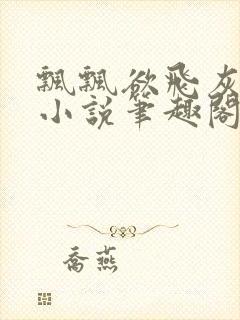 飄飄欲飛灰
小說筆趣閣
喬燕